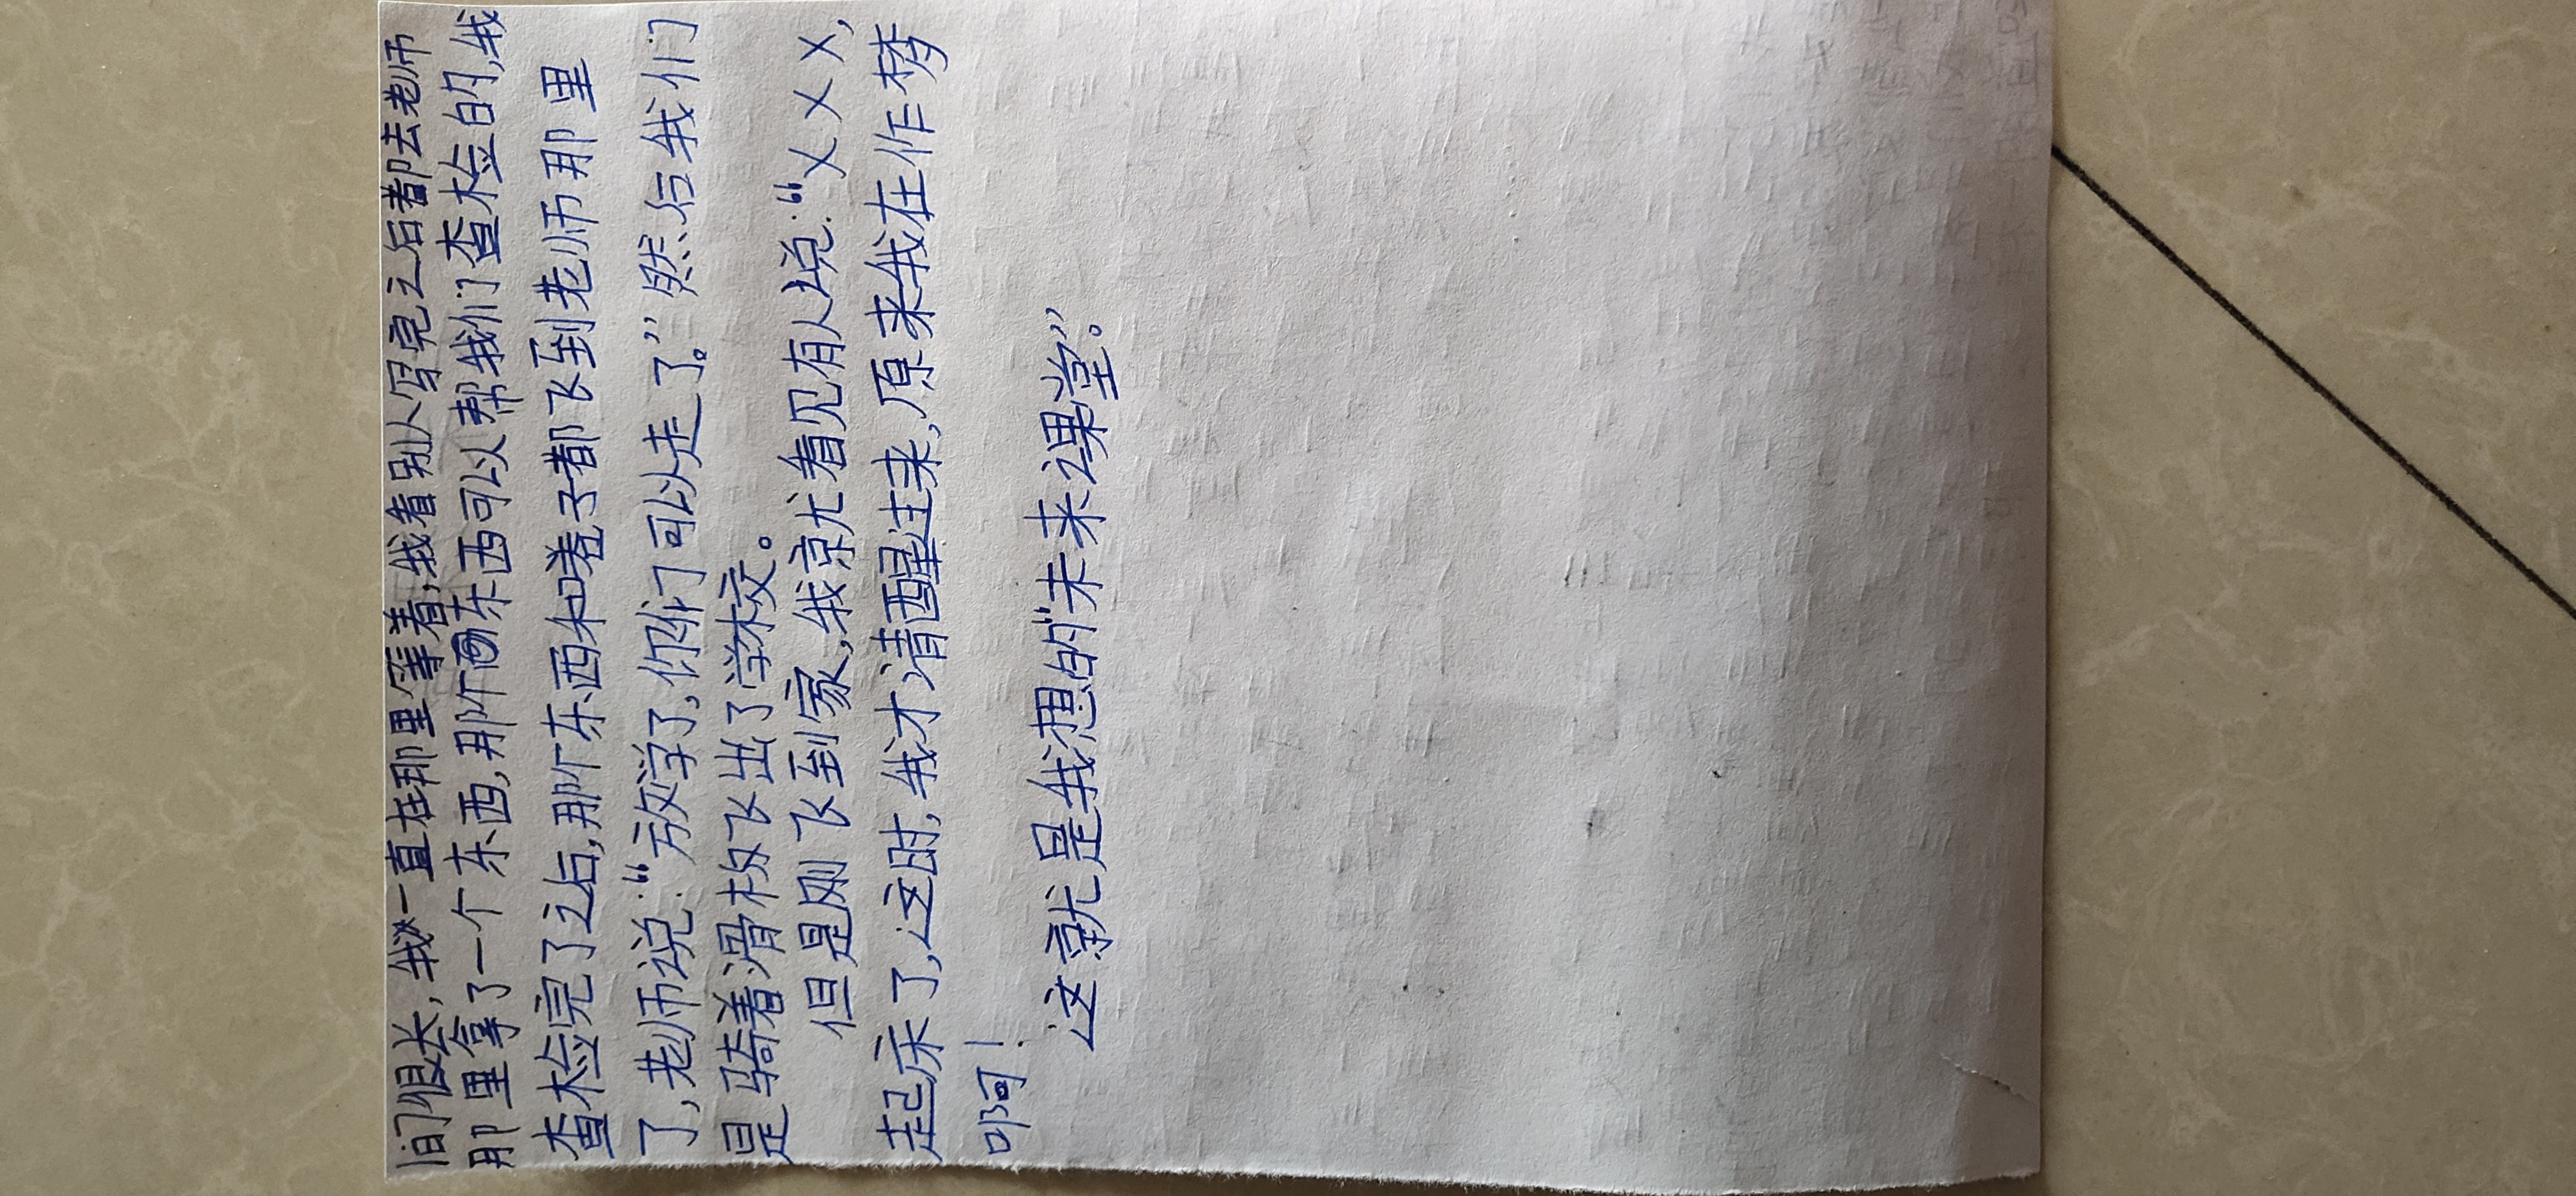 间很长，我一直在那里等着，我看别人写完之后都去老师
那里拿了一个东西，那个东西可以帮我们查检的，我
查检完了之后，那个东西和卷子都飞到老师那里
了，老师说：“放学了，你们可以走了。”然后我们
是骑着滑板飞出了学校。
但是刚飞到家，我就看见有人说：“×××，
起床了，这时，我才清醒过来，原来我在作梦
啊！
这就是我想的“未来课堂”。